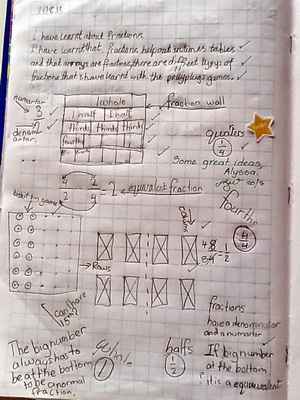 20.8.13
I have learnt about fractions.
I have learnt that fractions help out in times tables
and that arrays are fractions, there are different types of
fractions that i have learnt with the games.
numartor
3
denominator
1 whole
1 half 1 half
thirds thirds thirds
fourths
fraction wall
quaters
1/4
Some great ideas,
Alyssa.
or
fourths
4/4
4 2
2 4
=2
equivalent fraction
game
column
Rows
4/8 = 1/2
can have
The big number
always has to
be at the bottom
to be a normal
fraction.
whole
1
halfs
1/2
fractions
have a denominator
and a numartor
If big number
at the bottom
it is a equivalent